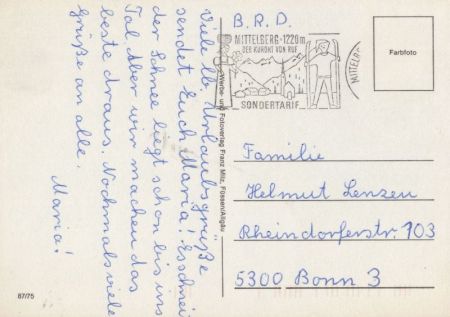 Viele lb. Urlaubsgrüße
sendet Euch Maria! Es schneit
der Schnee liegt schon bis ins
Tal Aber wir machen das
beste draus. Nochmals viele
Grüße an alle.
Maria!
87/75
Werbe- und Fotoverlag Franz Milz, Füssen/Allgäu
B.R.D.
MITTELBERG · 1220 m
DER KURORT VON RUF
SONDERTARIF
MITTELB
Farbfoto
Familie
Helmut Lenzen
Rheindorferstr. 103
5300 Bonn 3